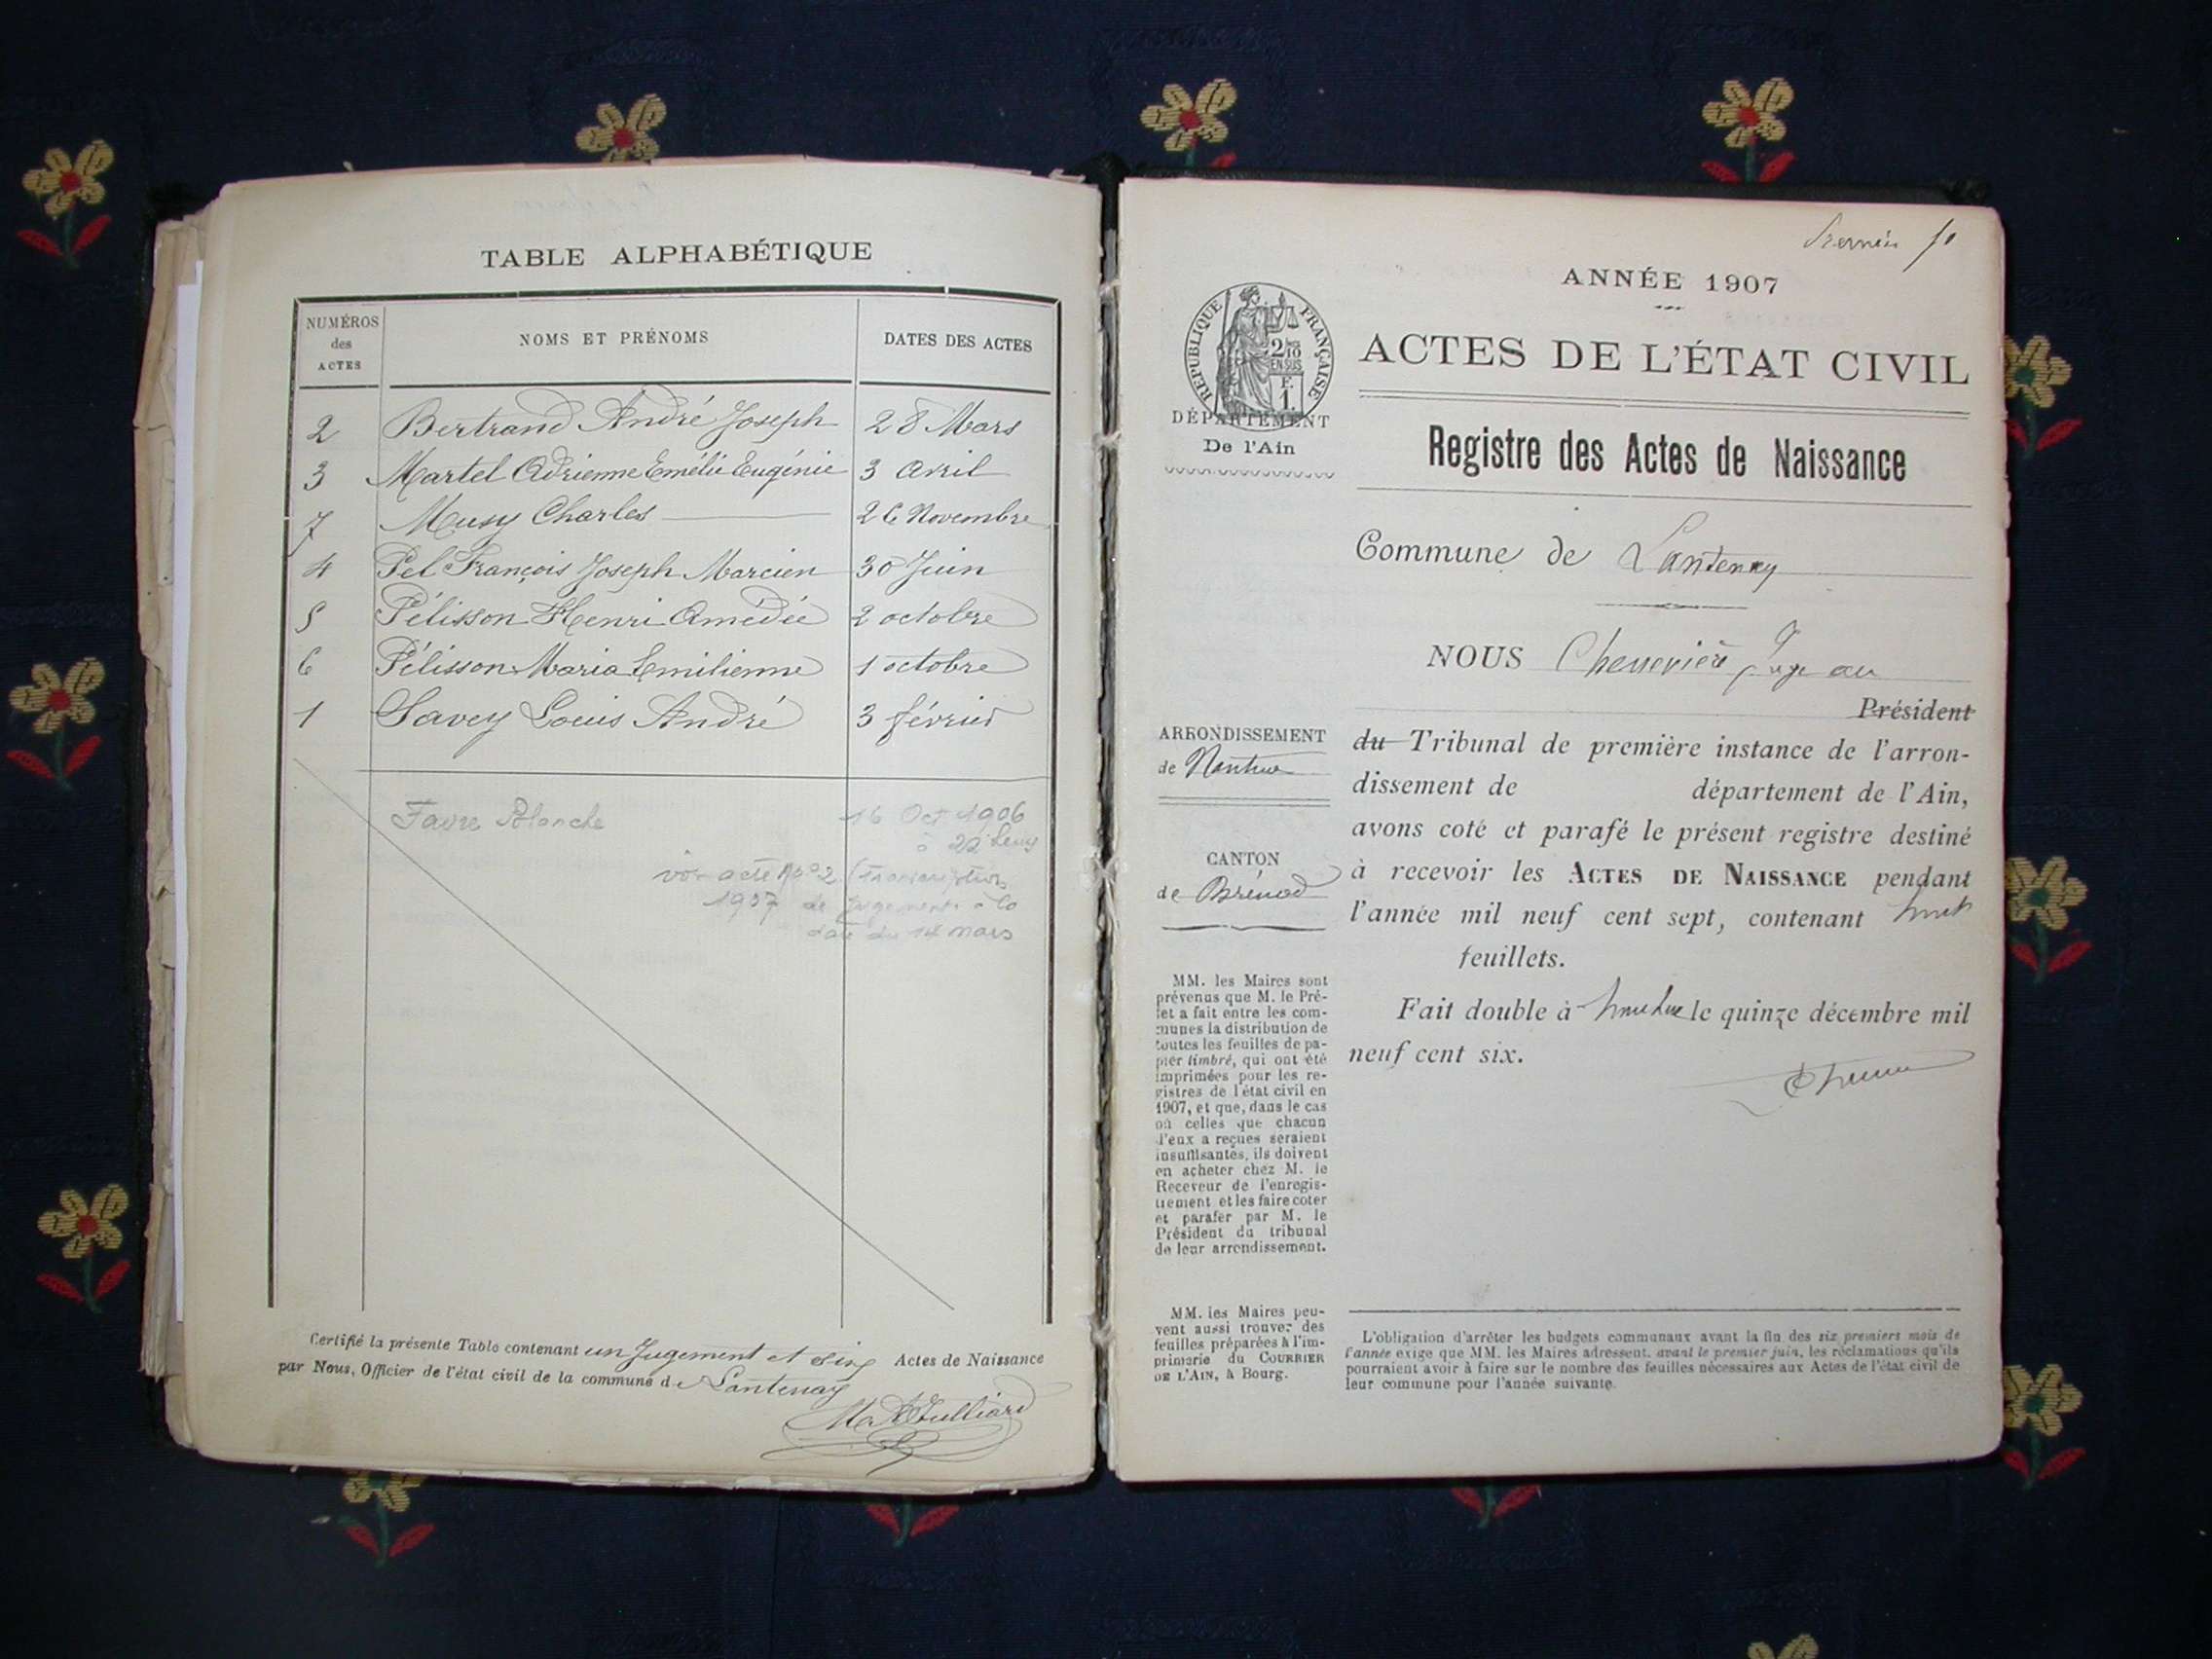 TABLE ALPHABÉTIQUE
NUMÉROS
des
ACTES
NOMS ET PRÉNOMS
DATES DES ACTES
2 Bertrand André Joseph 28 Mars
3 Martel Adrienne Emélie Eugénie 3 avril
7 Musy Charles 26 Novembre
4 Pel François Joseph Marcien 30 Juin
5 Pélisson Henri Amédée 2 octobre
6 Pélisson Maria Emilienne 1 octobre
1 Savey Louis André 3 février
Favre Blanche 16 Oct 1906
à 22
voir acte No 2 (transcription
1907 de jugements à la
date du 14 mars
Certifié la présente Table contenant un Jugement et cinq Actes de Naissance
par Nous, Officier de l'état civil de la commune de Lantenay
RÉPUBLIQUE FRANÇAISE
2/10
EN SUS
F.
1.
DÉPARTEMENT
De l'Ain
ARRONDISSEMENT
de Nantua
CANTON
de Brénod
MM. les Maires sont
prévenus que M. le Pré-
fet a fait entre les com-
munes la distribution de
toutes les feuilles de pa-
pier timbré, qui ont été
imprimées pour les re-
gistres de l'état civil en
1907, et que, dans le cas
où celles que chacun
d'eux a reçues seraient
insuffisantes, ils doivent
en acheter chez M. le
Receveur de l'enregis-
trement et les faire coter
et parafer par M. le
Président du tribunal
de leur arrondissement.
MM. les Maires peu-
vent aussi trouver des
feuilles préparées à l'im-
primerie du COURRIER
DE L'AIN, à Bourg.
ANNÉE 1907
ACTES DE L'ÉTAT CIVIL
Registre des Actes de Naissance
Commune de Lantenay
NOUS Juge au
Président
du Tribunal de première instance de l'arron-
dissement de département de l'Ain,
avons coté et parafé le présent registre destiné
à recevoir les ACTES DE NAISSANCE pendant
l'année mil neuf cent sept, contenant huit
feuillets.
Fait double à Nantua le quinze décembre mil
neuf cent six.
L'obligation d'arrêter les budgets communaux avant la fin des six premiers mois de
l'année exige que MM. les Maires adressent, avant le premier juin, les réclamations qu'ils
pourraient avoir à faire sur le nombre des feuilles nécessaires aux Actes de l'état civil de
leur commune pour l'année suivante.